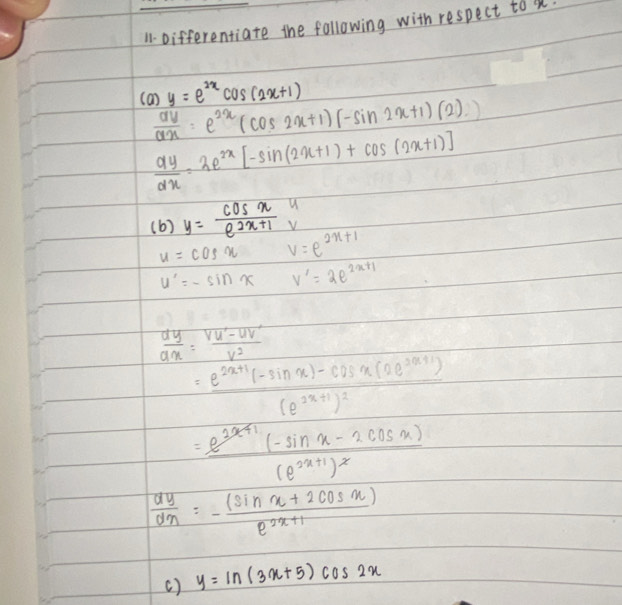 11. Differentiate the following with respect to x.
(a) y = e^{2x} cos (2x+1)
dy/dx = e^{2x} (cos 2x+1) (-sin 2x+1) (2)
dy/dx = 2e^{2x} [-sin(2x+1) + cos (2x+1)]
(b) y = cos x / e^{2x+1} u v
u = cos x v = e^{2x+1}
u' = - sin x v' = 2e^{2x+1}
dy/dx = vu' - uv' / v²
= e^{2x+1} (-sin x) - cos x (2e^{2x+1}) / (e^{2x+1})²
= e^{2x+1} (-sin x - 2 cos x) / (e^{2x+1})²
dy/dx = - (sin x + 2 cos x) / e^{2x+1}
c) y = ln (3x+5) cos 2x